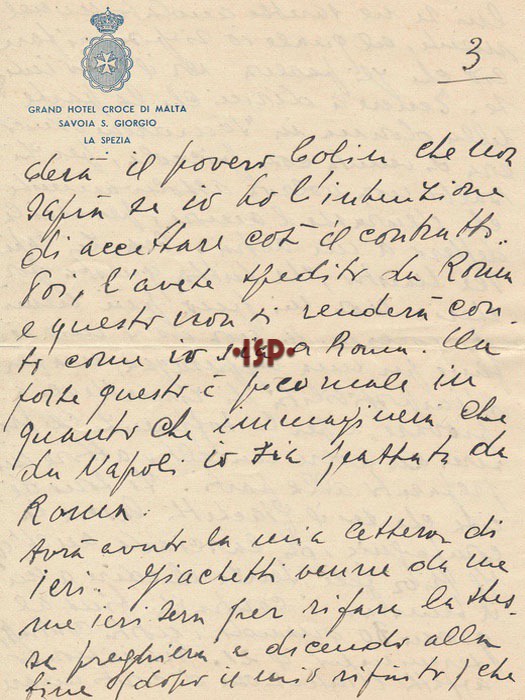 3
GRAND HOTEL CROCE DI MALTA
SAVOIA S. GIORGIO
LA SPEZIA
derà il povero Colin che non
saprà se io ho l'intenzione
di accettare così il contratto.
Poi, l'avete spedito da Roma
e questo non si renderà con-
to come io sia a Roma. Ma
forse questo è poco male in
quanto che immaginerà che
da Napoli io sia passata da
Roma.
Avrà avuto la mia lettera di
ieri. Giachetti venne da me
ieri sera per rifare la stes-
sa preghiera e dicendo alla
fine (dopo il mio rifiuto) che
ISP